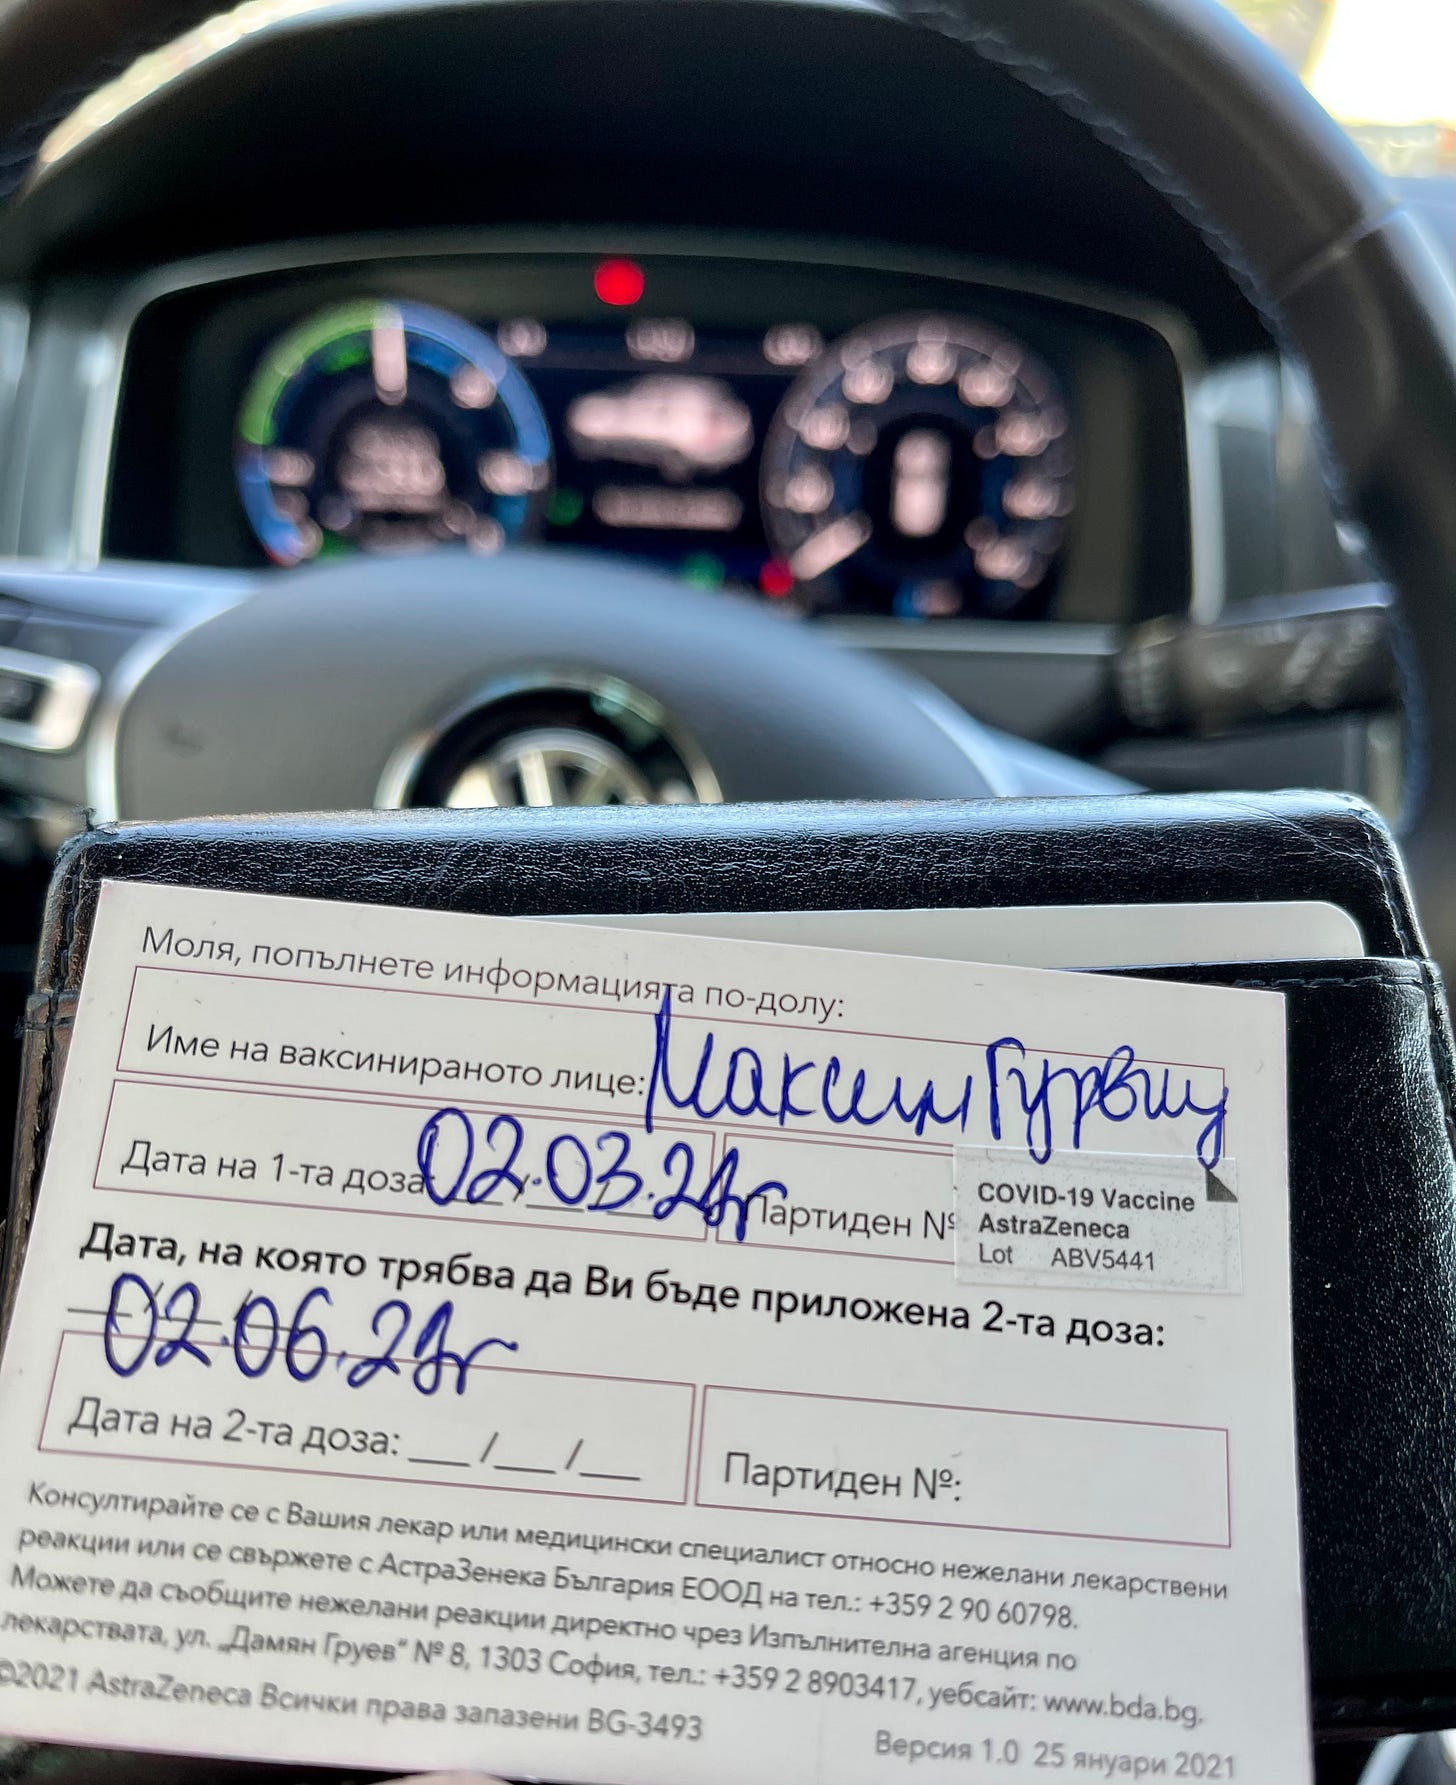 Моля, попълнете информацията по-долу:
Име на ваксинираното лице: Максим Гурвиц
Дата на 1-та доза 02.03.21г Партиден №
COVID-19 Vaccine
AstraZeneca
Lot ABV5441
Дата, на която трябва да Ви бъде приложена 2-та доза:
02.06.21г
Дата на 2-та доза: __ /__ /__ Партиден №:
Консултирайте се с Вашия лекар или медицински специалист относно нежелани лекарствени
реакции или се свържете с АстраЗенека България ЕООД на тел.: +359 2 90 60798.
Можете да съобщите нежелани реакции директно чрез Изпълнителна агенция по
лекарствата, ул. „Дамян Груев“ № 8, 1303 София, тел.: +359 2 8903417, уебсайт: www.bda.bg.
©2021 AstraZeneca Всички права запазени BG-3493
Версия 1.0 25 януари 2021